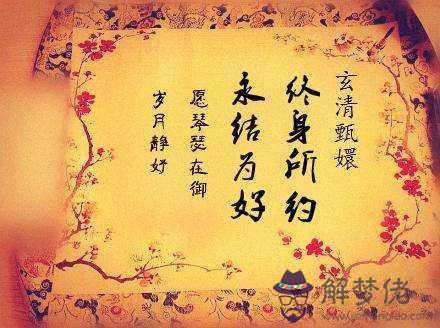 玄清甄嬛
终身所约
永结为好
愿琴瑟在御
岁月静好
解梦佬